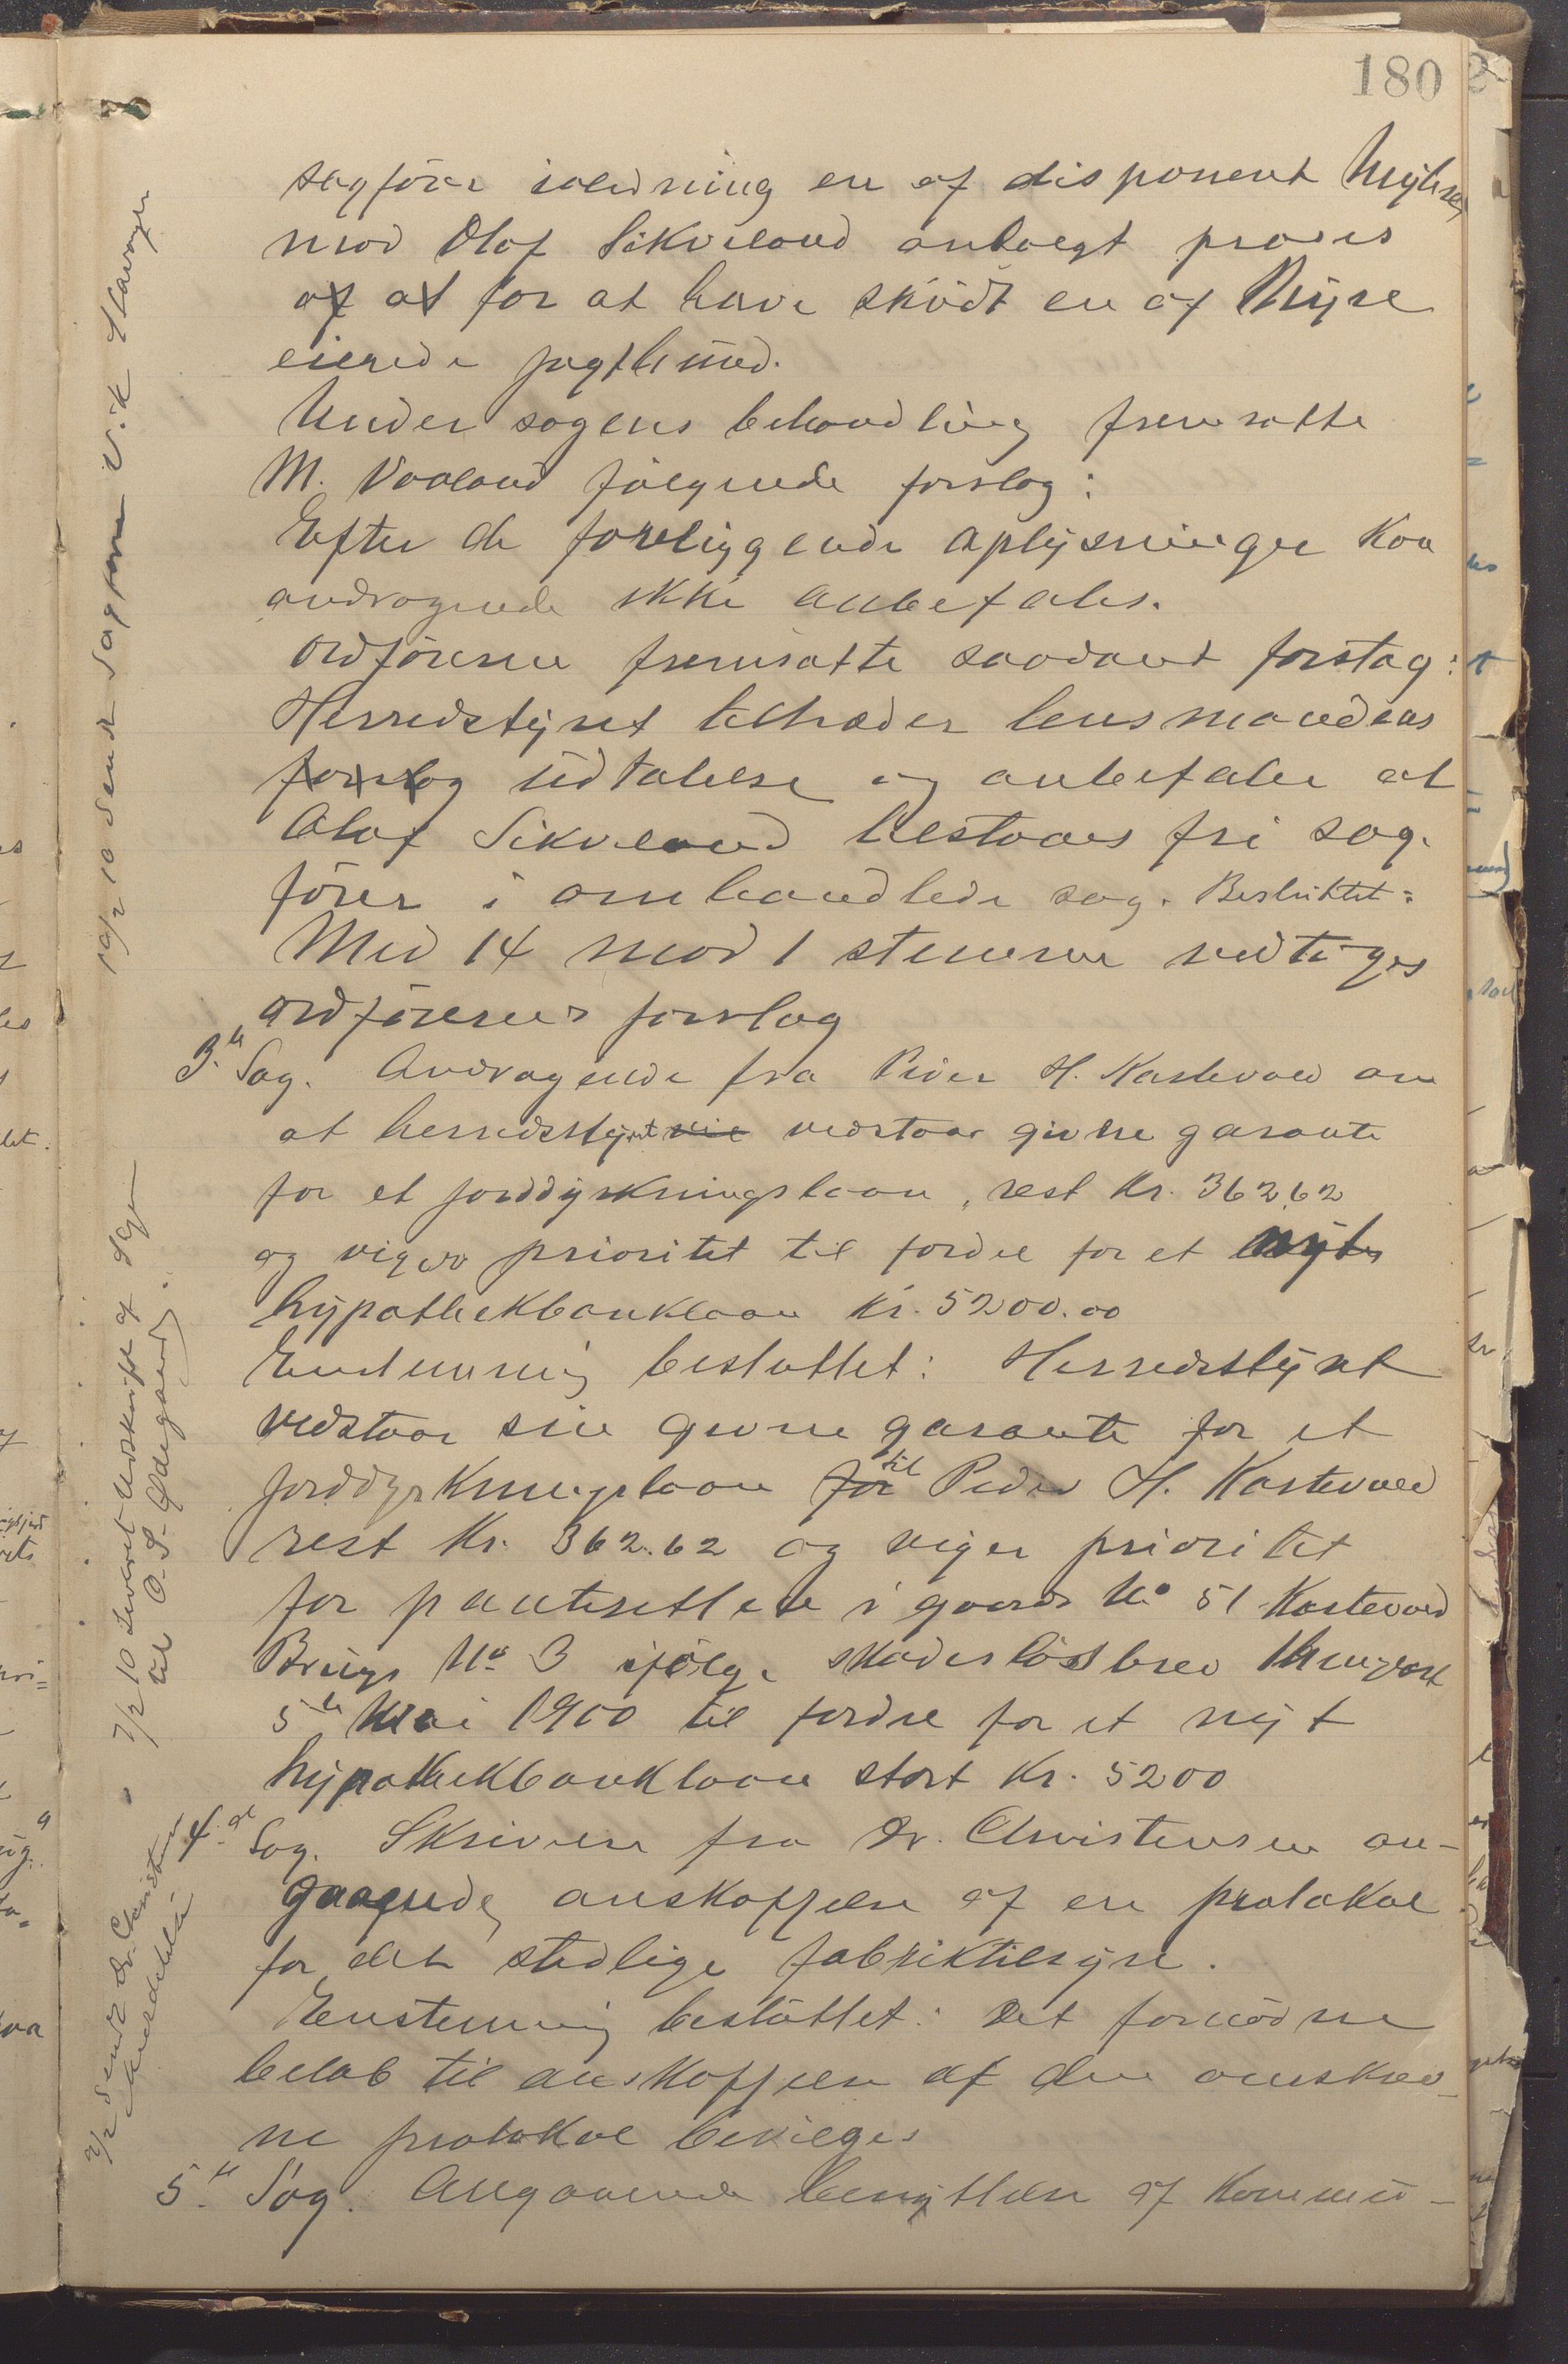 180
sagfører i anledning en af disponent Myhre
mod Olaf Sikveland anlagt proces
af at for at have skudt en af Myhre
eiende jagthund.
Under sagens behandling fremsatte
M. Vaaland følgende forslag:
Efter de foreliggende oplysninger kan
andragende ikke anbefales.
Ordføreren fremsatte saadant forslag:
Herredstyret tiltræder lensmandens
forslag udtalelse og anbefaler at
Olaf Sikveland tilstaaes fri sag-
fører i omhandlede sag. Besluttet:
Med 14 mod 1 stemme vedtoges
ordførerens forslag
3.die Sag. Andragende fra Peder H. Kastevold om
at herredstyret vil vedstaar givne garanti
for et jorddyrkningslaan, rest Kr. 362,62
og viger prioritet til fordel for et nyt
hypothekbanklaan Kr. 5200.00
Enstemmig besluttet: Herredstyret
vedstaar sin givne garanti for et
jorddyrkningslaan for til Peder H. Kastevold
rest Kr. 362.62 og viger prioritet
for panteretten i gaards No 51 Kastevold
Brugs No 3 ifølge skadesløsbrev thinglæst
5te Mai 1900 til fordel for et nyt
hypothekbanklaan stort Kr. 5200
4.de Sag. Skrivelse fra Dr. Christensen an-
gaaende anskaffelse af en protokol
for det stedlige fabriktilsyn.
Enstemmig besluttet: Det fornødne
beløb til anskaffelse af den omskrev-
ne protokol bevilges
5.te Sag. Angaaende benyttelse af Kommu-
10/2 10 sendt Sagfører Vik Stavanger
7/2 10 Leveret Udskrift af Sagen
til O. S. Ødegaard.
2/2 sendt Dr. Christensen